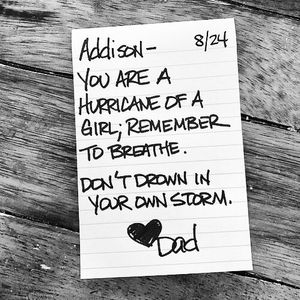 Addison- 8/24
YOU ARE A
HURRICANE OF A
GIRL; REMEMBER
TO BREATHE.
DON'T DROWN IN
YOUR OWN STORM.
Dad